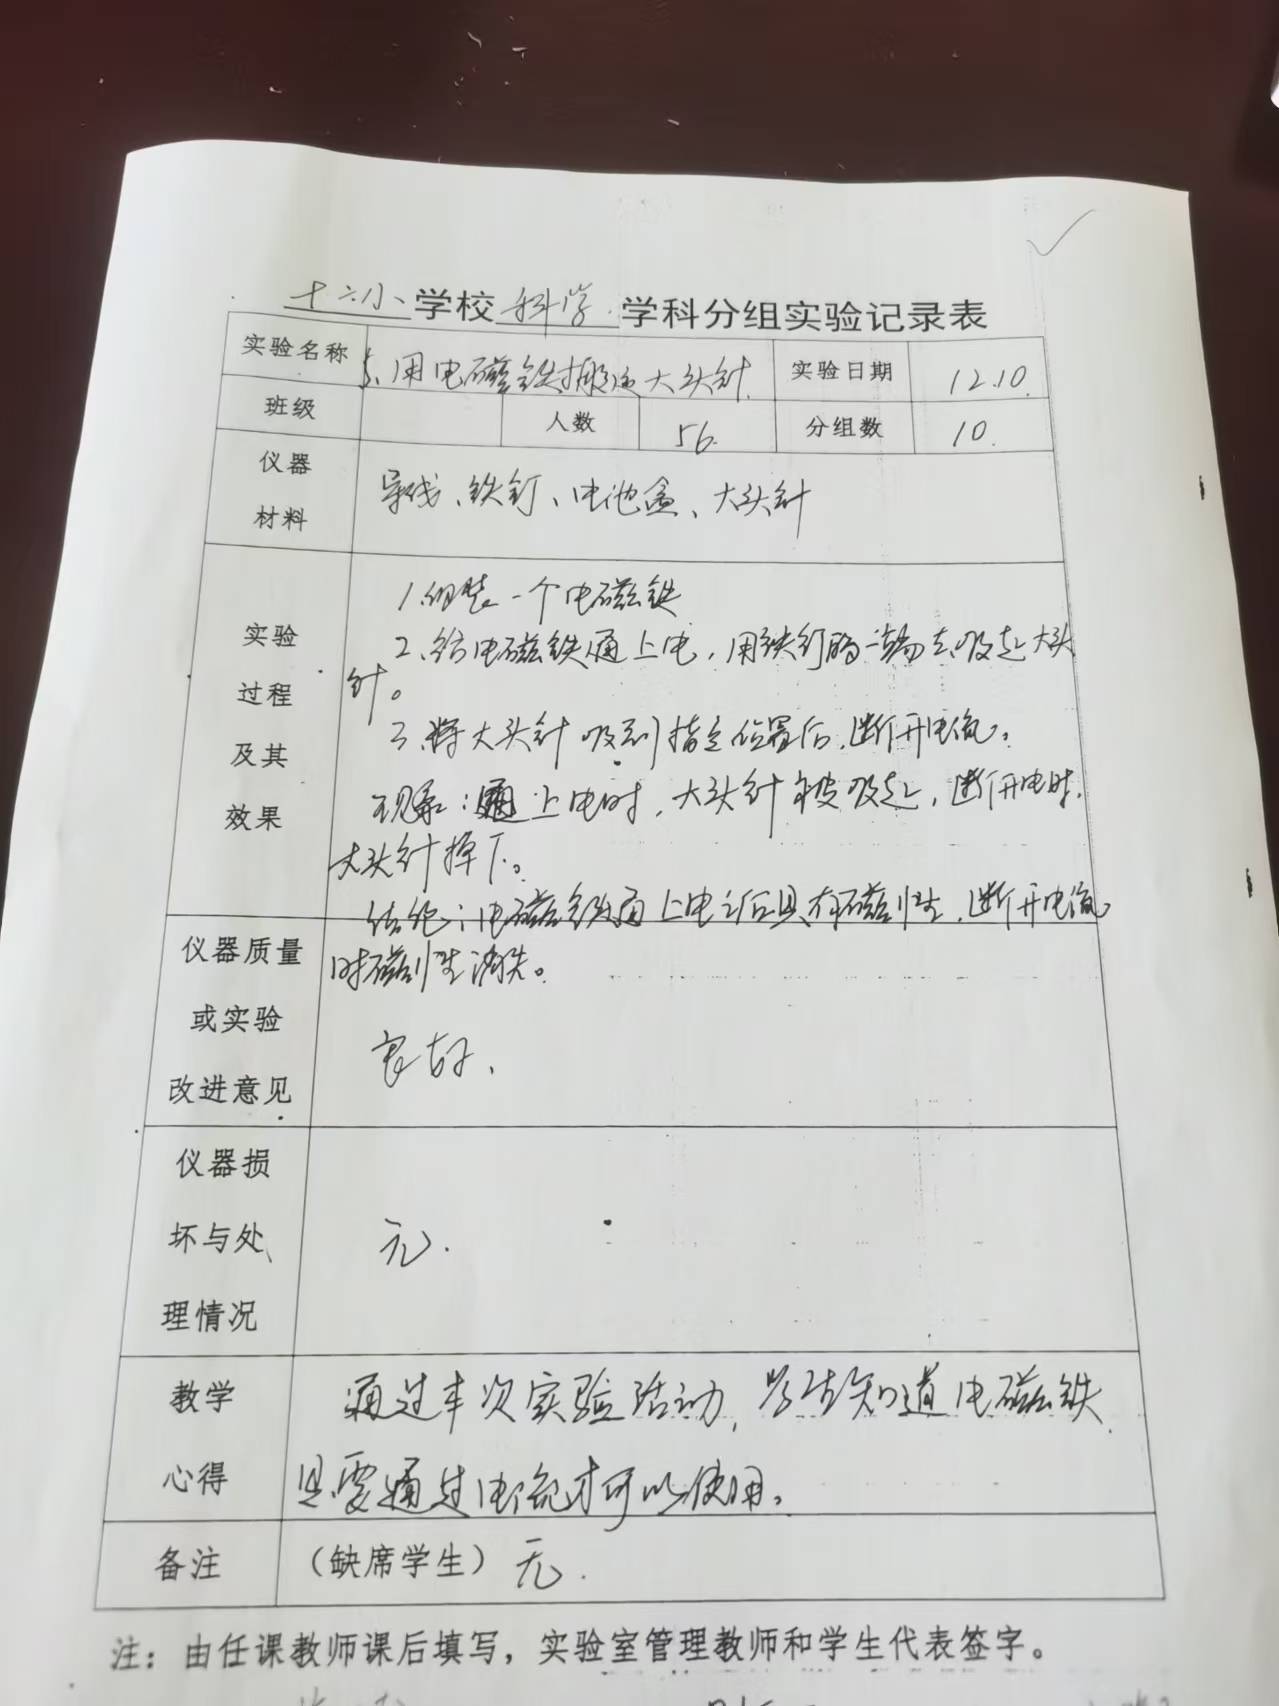 十六小学校科学学科分组实验记录表
实验名称 5、用电磁铁搬运大头针 实验日期 12.10.
班级 人数 56. 分组数 10.
仪器
材料
导线、铁钉、电池盒、大头针
实验
过程
及其
效果
1.组装一个电磁铁
2、给电磁铁通上电，用铁钉的一端去吸起大头
针。
3、将大头针吸到指定位置后，断开电流。
现象：通上电时，大头针被吸起，断开电时，
大头针掉下。
结论：电磁铁通上电之后具有磁性，断开电流
时磁性消失。
仪器质量
或实验
改进意见
良好、
仪器损
坏与处
理情况
无.
教学
心得
通过本次实验活动，学生知道电磁铁
是要通过电流才可以使用。
备注 （缺席学生）无.
注：由任课教师课后填写，实验室管理教师和学生代表签字。